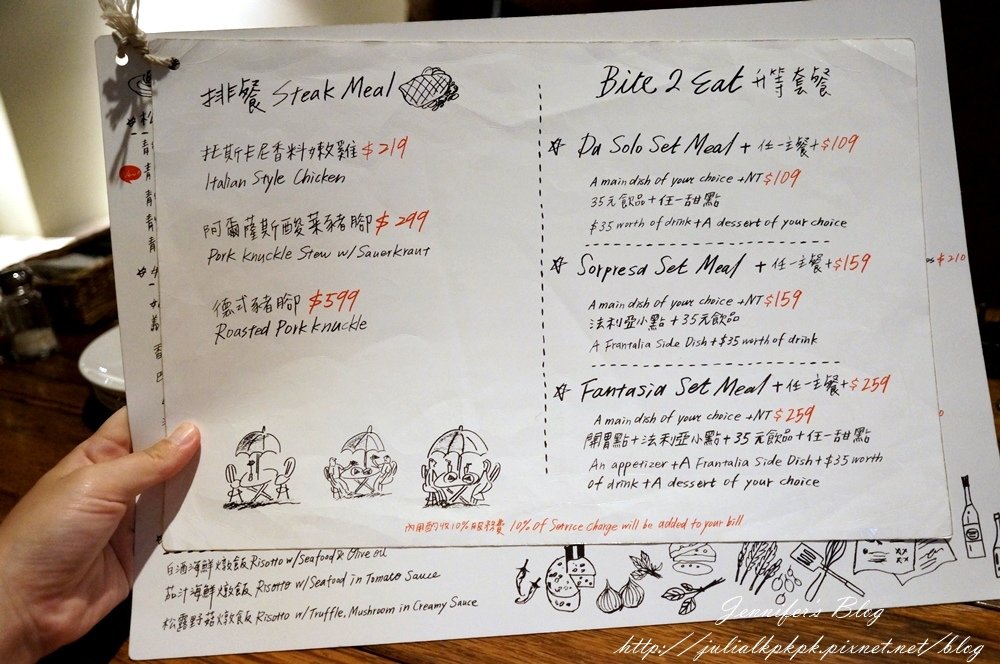 排餐 Steak Meal
托斯卡尼香料嫩雞 $219
Italian Style Chicken
阿爾薩斯酸菜豬腳 $299
Pork Knuckle Stew w/ Sauerkraut
德式豬腳 $599
Roasted Pork Knuckle
Bite 2 Eat 升等套餐
Da Solo Set Meal + 任一主餐+$109
A main dish of your choice +NT$109
35元飲品+任一甜點
$35 worth of drink+A dessert of your choice
Sorpresa Set Meal + 任一主餐+$159
A main dish of your choice +NT$159
法利亞小點+35元飲品
A Frantalia Side Dish+$35 worth of drink
Fantasia Set Meal + 任一主餐+$259
A main dish of your choice +NT$259
開胃點+法利亞小點+35元飲品+任一甜點
An appetizer +A Frantalia Side Dish+$35 worth
of drink +A dessert of your choice
內用酌收10%服務費 10% of Service charge will be added to your bill
$210
白酒海鮮燉飯 Risotto w/Seafood & Olive oil
茄汁海鮮燉飯 Risotto w/Seafood in Tomato Sauce
松露野菇燉飯 Risotto w/Truffle, Mushroom in Creamy Sauce
Jennifer's Blog
http://julialkpkpk.pixnet.net/blog